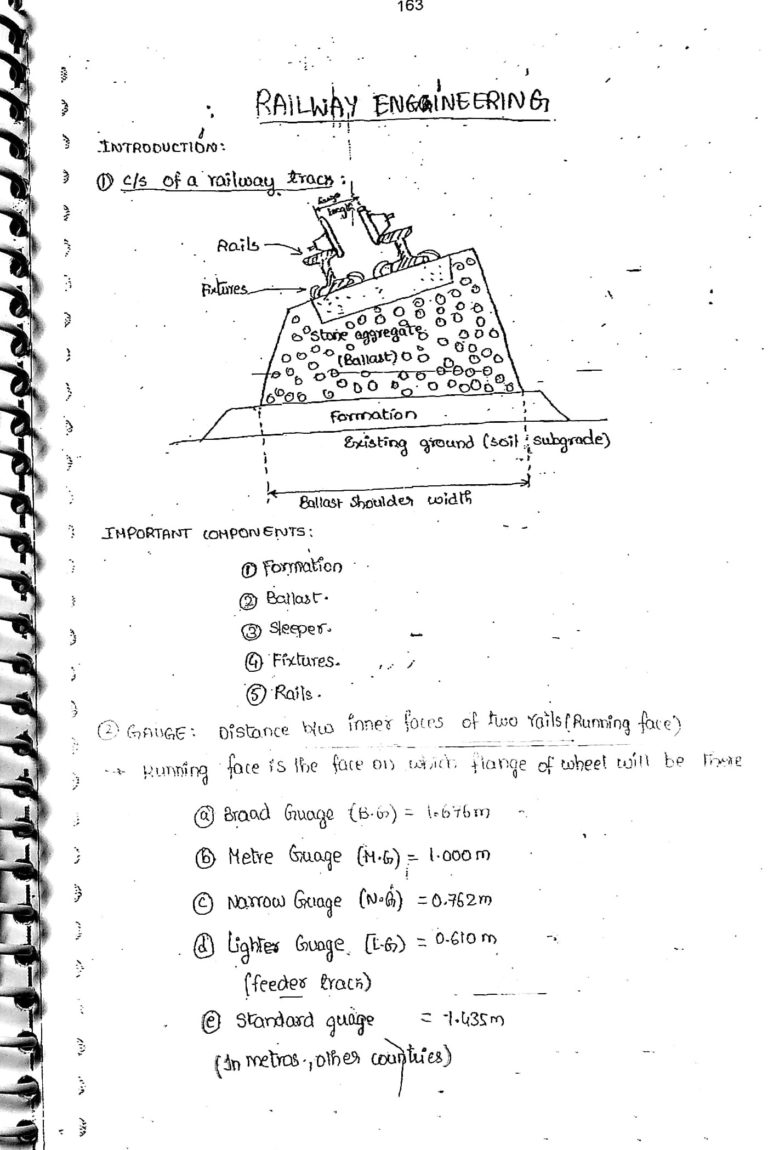 163
RAILWAY ENGGINEERING
INTRODUCTION:
① c/s of a railway track:
Gauge
length
Rails
Fixtures
Stone aggregate
(Ballast)
Formation
Existing ground (soil subgrade)
Ballast shoulder width
IMPORTANT COMPONENTS:
① Formation
② Ballast.
③ Sleeper.
④ Fixtures.
⑤ Rails.
② GAUGE: Distance b/w inner faces of two rails (Running face)
→ Running face is the face on which flange of wheel will be there
ⓐ Braad Guage (B.G) = 1.676m
ⓑ Metre Guage (M.G) = 1.000m
ⓒ Narrow Guage (N.G) = 0.762m
ⓓ Lighter Guage (L.G) = 0.610m
(feeder track)
ⓔ Standard guage = 1.435m
(In metros, other countries)